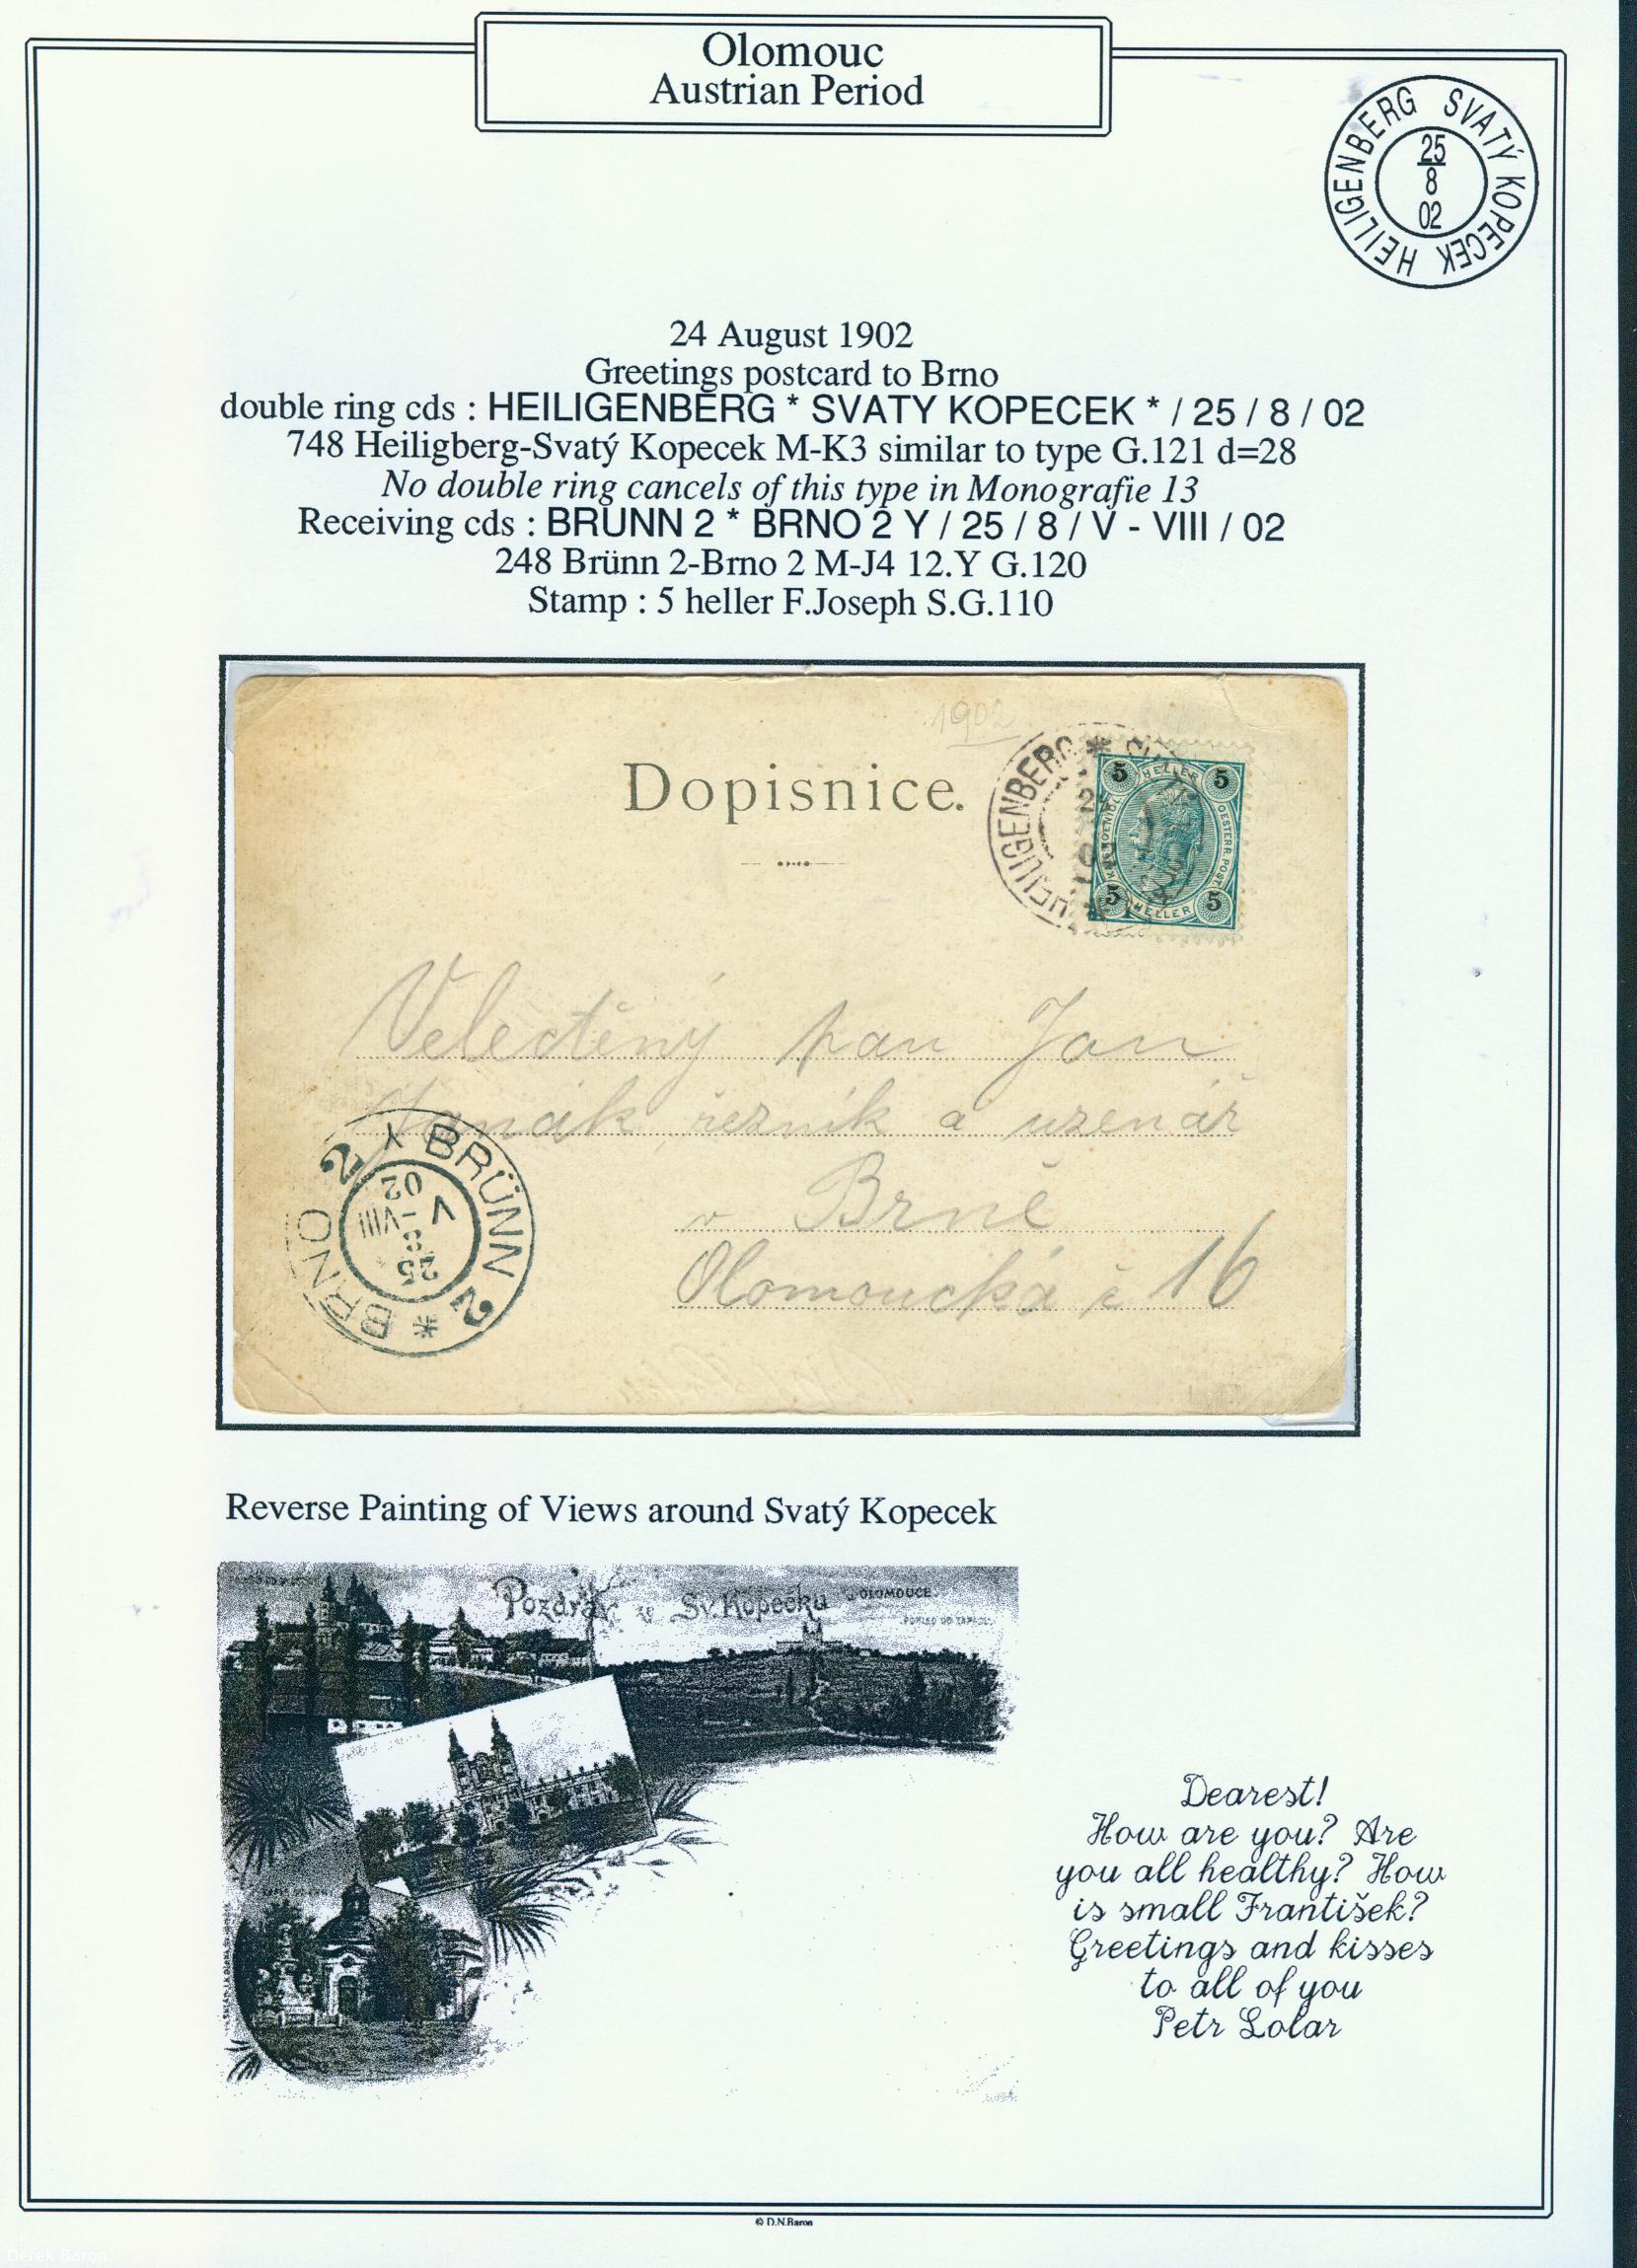 Olomouc
Austrian Period
HEILIGENBERG SVATÝ KOPECEK
25
8
02
24 August 1902
Greetings postcard to Brno
double ring cds : HEILIGENBERG * SVATY KOPECEK * / 25 / 8 / 02
748 Heiligberg-Svatý Kopecek M-K3 similar to type G.121 d=28
No double ring cancels of this type in Monografie 13
Receiving cds : BRUNN 2 * BRNO 2 Y / 25 / 8 / V - VIII / 02
248 Brünn 2-Brno 2 M-J4 12.Y G.120
Stamp : 5 heller F.Joseph S.G.110
1902
Dopisnice.
HEILIGENBERG *
5 HELLER 5
OESTERR. POST
5 HELLER 5
Velectěný pan Jan
řezník a uzenář
v Brně
Olomoucká č 16
BRÜNN 2 * BRNO 2 Y
25
8
V - VIII
02
Reverse Painting of Views around Svatý Kopecek
Pozdrav ze Sv. Kopečku
OLOMOUCE.
Dearest!
How are you? Are
you all healthy? How
is small František?
Greetings and kisses
to all of you
Petr Lolar
© D.N.Baron
Derek Baron